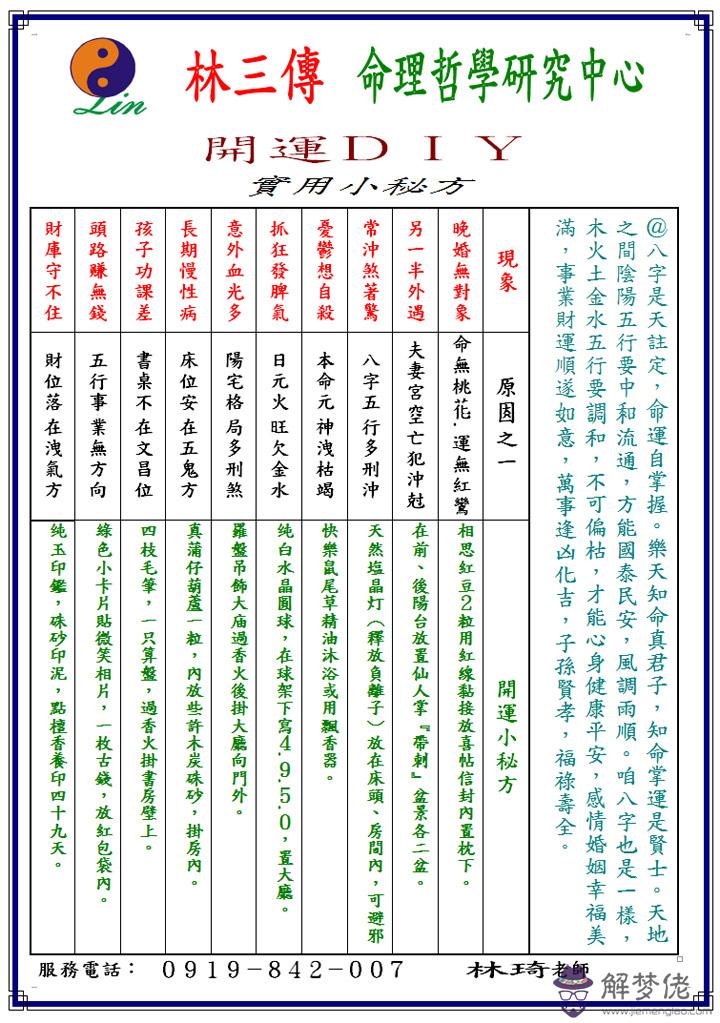 Lin
林三傳 命理哲學研究中心
開運ＤＩＹ
實用小秘方
@八字是天註定，命運自掌握。樂天知命真君子，知命掌運是賢士。天地
之間陰陽五行要中和流通，方能國泰民安，風調雨順。咱八字也是一樣，
木火土金水五行要調和，不可偏枯，才能心身健康平安，感情婚姻幸福美
滿，事業財運順遂如意，萬事逢凶化吉，子孫賢孝，福祿壽全。
現象
原因之一
開運小秘方
晚婚無對象
命無桃花.運無紅鸞
相思紅豆2粒用紅線黏接放喜帖信封內置枕下。
另一半外遇
夫妻宮空亡犯沖尅
在前、後陽台放置仙人掌『帶刺』盆景各二盆。
常沖煞著驚
八字五行多刑沖
天然塩晶灯（釋放負離子）放在床頭、房間內，可避邪
憂鬱想自殺
本命元神洩枯竭
快樂鼠尾草精油沐浴或用飄香器。
抓狂發脾氣
日元火旺欠金水
纯白水晶圓球，在球架下寫4.9.5.0，置大廳。
意外血光多
陽宅格局多刑煞
羅盤吊飾大庙過香火後掛大廳向門外。
長期慢性病
床位安在五鬼方
真蒲仔葫蘆一粒，內放些許木炭硃砂，掛房內。
孩子功課差
書桌不在文昌位
四枝毛筆，一只算盤，過香火掛書房壁上。
頭路賺無錢
五行事業無方向
綠色小卡片貼微笑相片，一枚古錢，放紅包袋內。
財庫守不住
財位落在洩氣方
纯玉印鑑，硃砂印泥，點檀香養印四十九天。
服務電話： 0919-842-007 林琦老師
解梦佬
www.jiemenglao.com